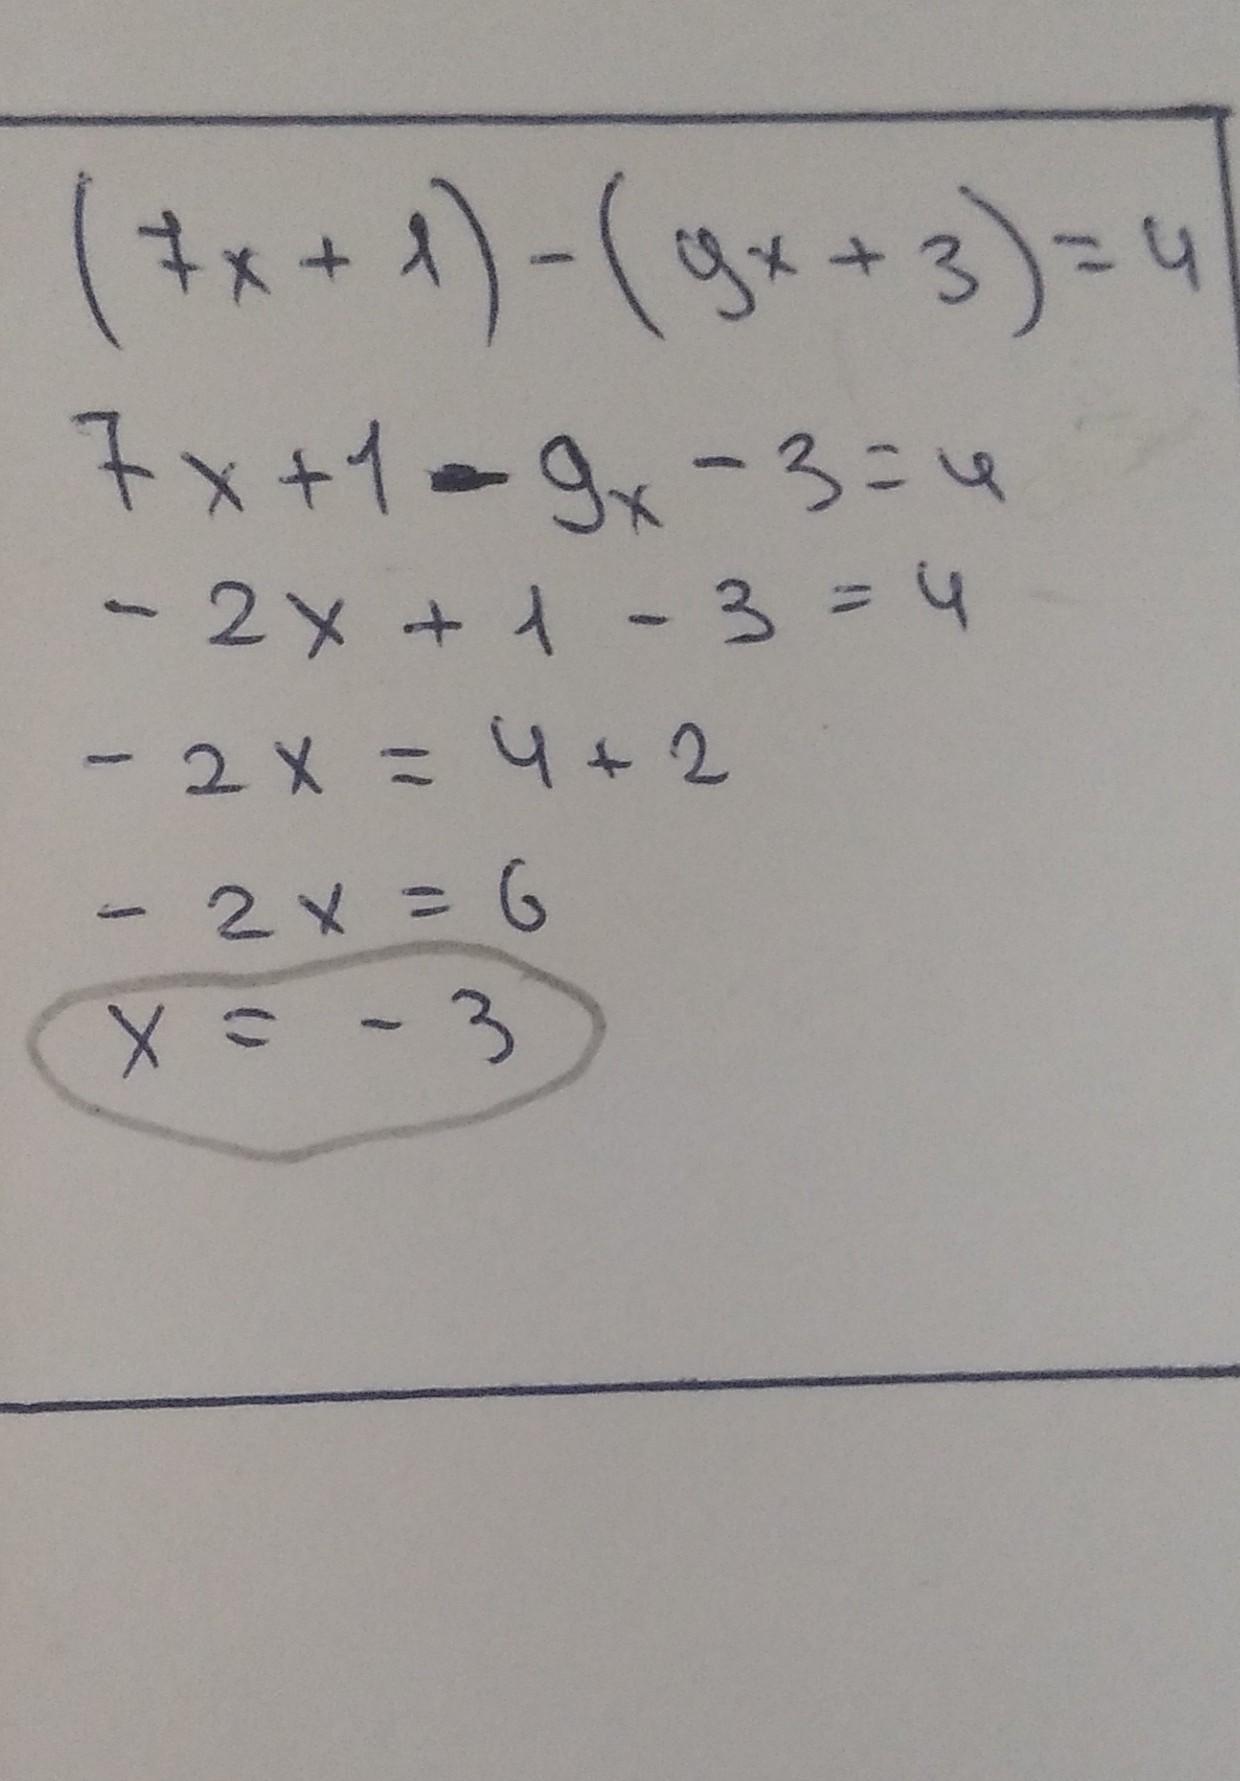 (7x + 1) - (9x + 3) = 4
7x + 1 - 9x - 3 = 4
- 2x + 1 - 3 = 4
- 2x = 4 + 2
- 2x = 6
x = - 3